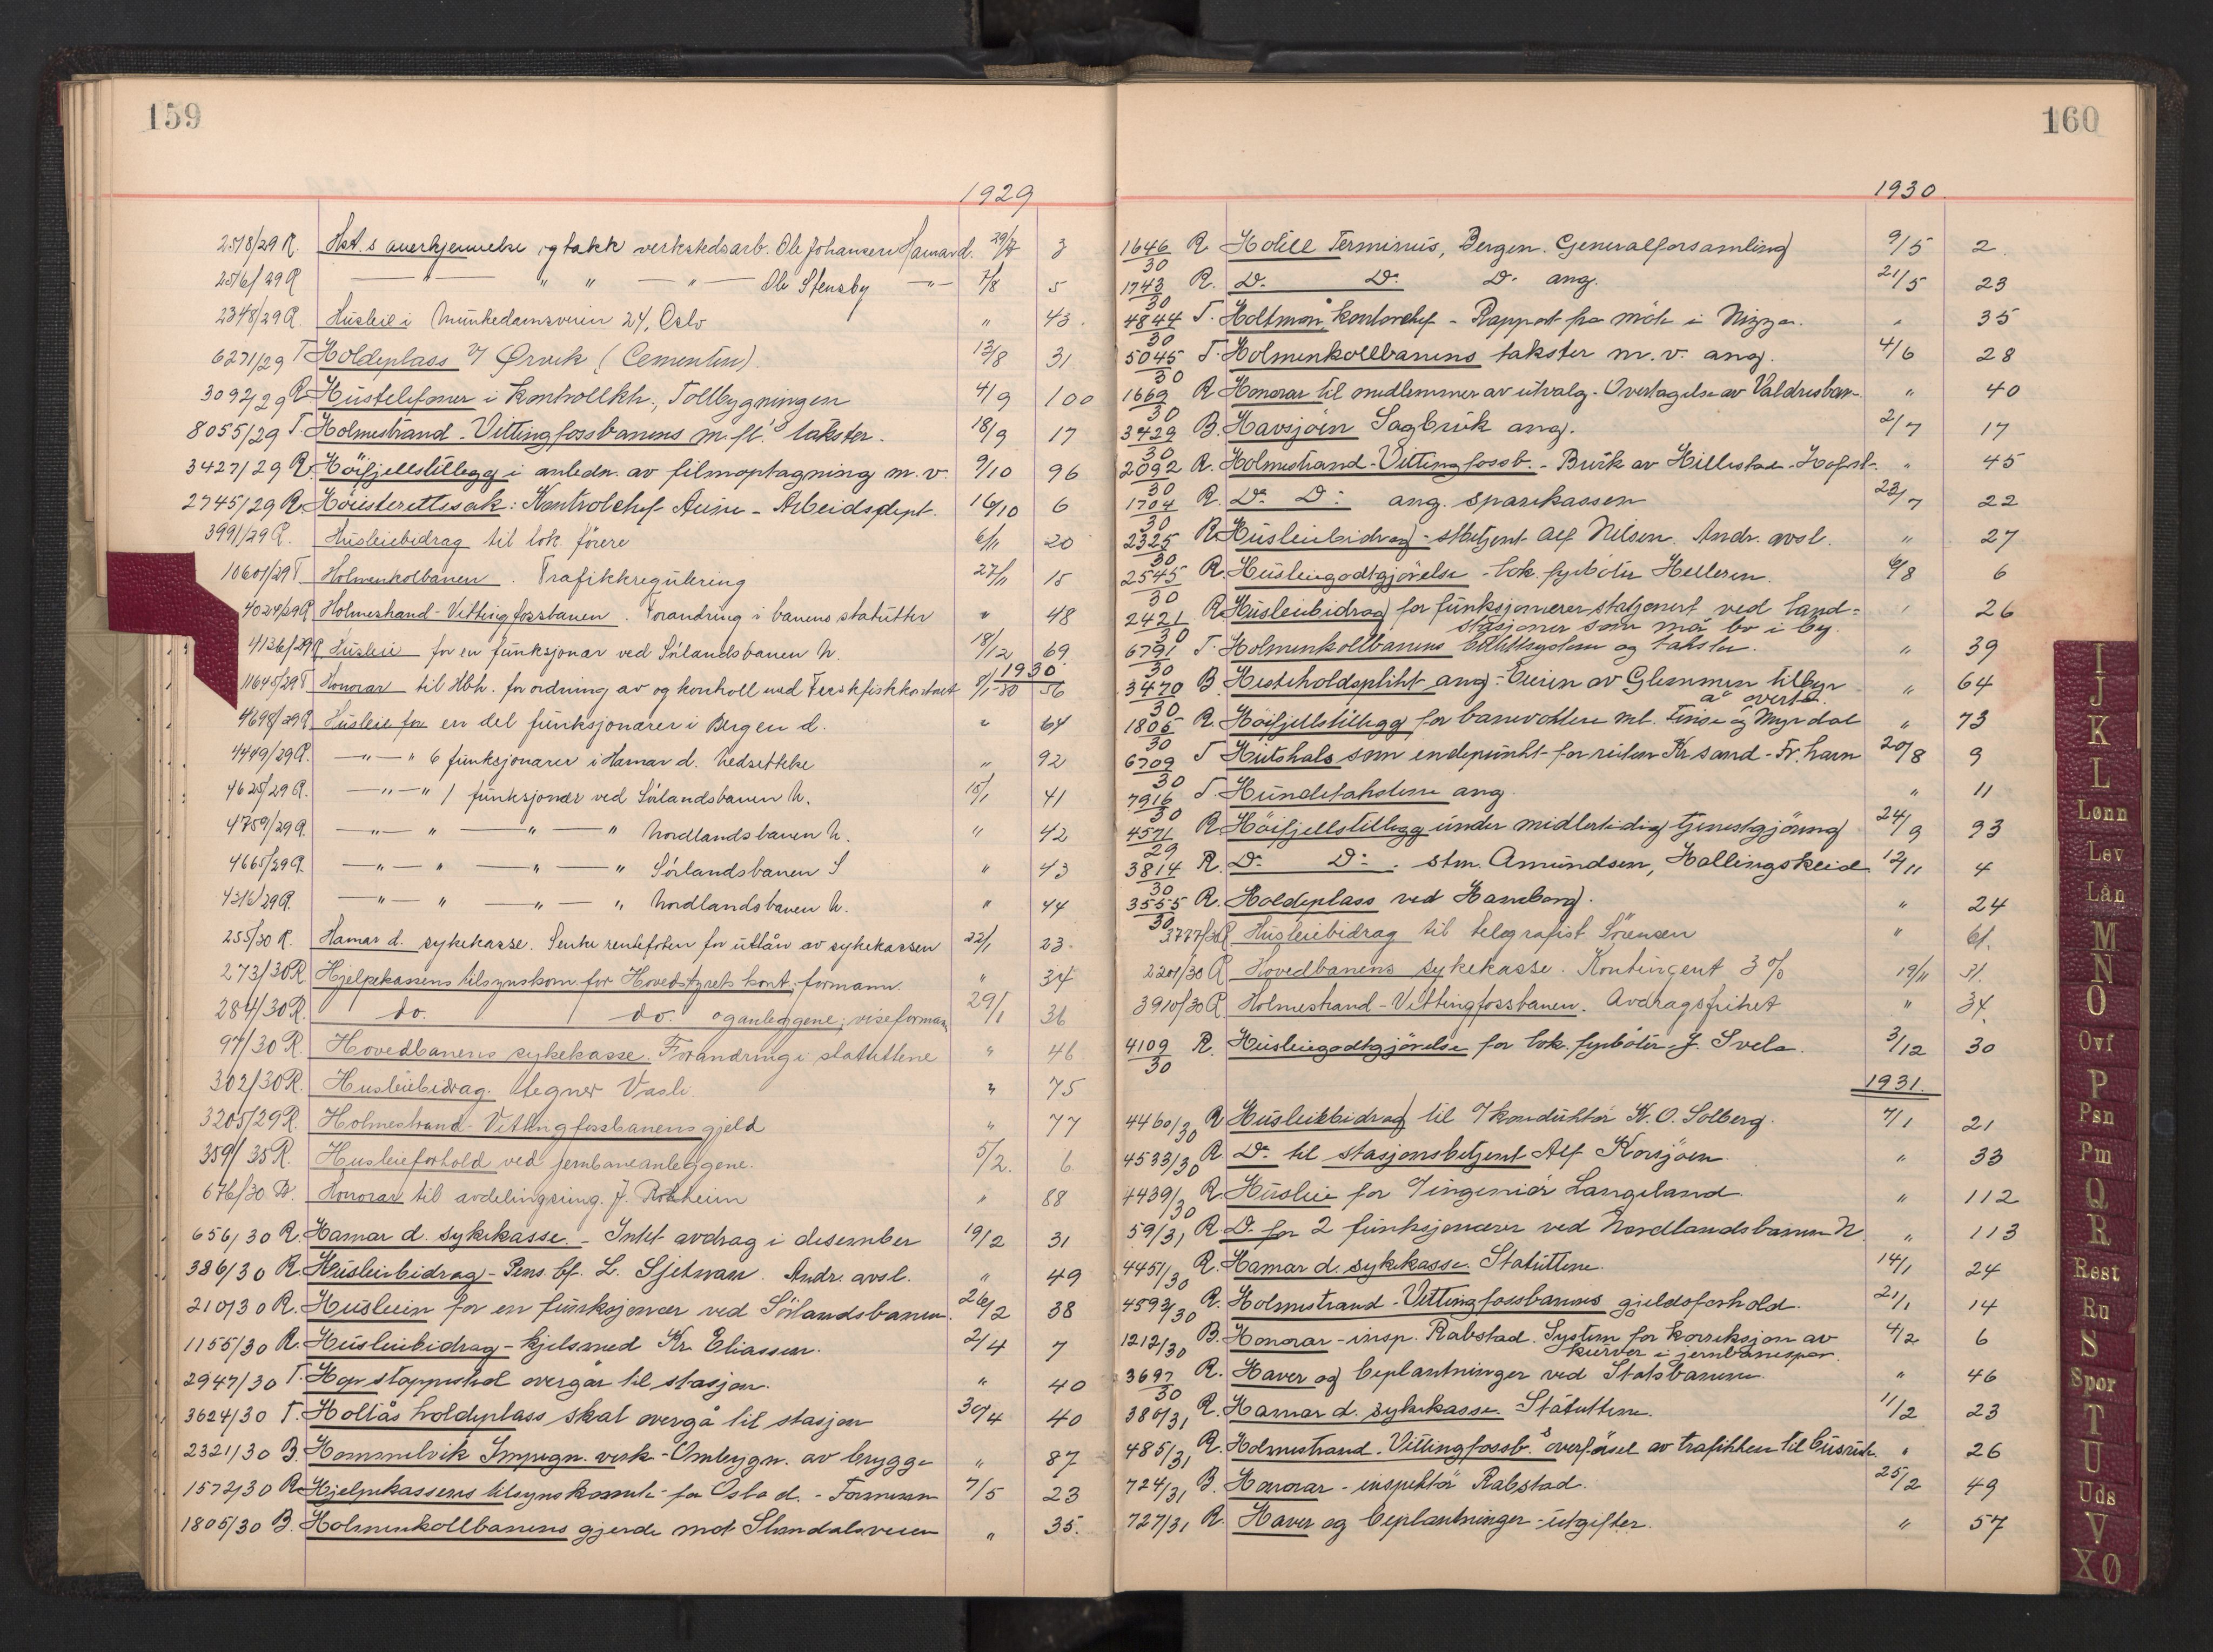 159
1929
2518/29 R. Hst.s anerkjennelse og takk verkstedsarb. Ole Johansen Hamar d. 29/7 3
2576/29 R — " — " " — " — Ole Stensby — " — 7/8 5
2348/29 R. Husleie i Munkedamsveien 24, Oslo " 43.
6271/29 T Holdeplass v/ Ørvik (Cementen) 13/8 31
3092/29 R Hustelefoner i Kontrollkt., Tollbygningen 4/9 100
8055/29 T. Holmestrand-Vittingfossbanens m.fl.'s takster. 18/9 17
3427/29 R. Höifjellstillegg i anledn. av filmoptagning m.v. 9/10 96
2745/29 R. Höiesterettssak: Kontrolchef Aune - Arbeidsdept. 16/10 6
3991/29 R. Husleiebidrag til lok. förere 6/11 20
10601/29 T Holmenkolbanen. Trafikkregulering 27/11 15
4024/29 R Holmestrand-Vittingfossbanen. Forandring i banens statutter " 48
4136/29 R Husleie for en funksjonær ved Sörlandsbanen N. 18/12 69
1930
11645/29 T Honorar til Hbk. for ordning av og kontroll med Ferskfiskkontoret 8/1-30 56
4698/29 R Husleie for en del funksjonærer i Bergen d. " 64
4449/29 R. — " — " 6 funksjonærer i Hamar d. Nedsettelse " 92
4625/29 R. — " — " 1 funksjonær ved Sörlandsbanen N. 15/1 41
4759/29 R. — " — " — " — " Nordlandsbanen N. " 42
4665/29 R. — " — " — " — " Sörlandsbanen S " 43
4316/29 R. — " — " — " — " Nordlandsbanen N. " 44
255/30 R. Hamar d. sykekasse. Senke rentefoten for utlån av sykekassen 22/1 23.
273/30 R Hjelpekassens tilsynskom for Hovedstyrets kont.; formann. " 34
284/30 R. do. do. og anleggene; viseformann 29/1 36
97/30 R. Hovedbanens sykekasse. Forandring i statuttene " 46
302/30 R. Husleiebidrag. tegner Vasli " 75
3205/29 R. Holmestrand-Vittingfossbanens gjeld " 77
359/35 R. Husleieforhold ved jernbaneanleggene. 5/2. 6
676/30 B. Honorar til avdelingsing. J. Rokheim " 88
656/30 R. Hamar d. sykekasse. - Intet avdrag i desember 19/2 31
386/30 R. Husleiebidrag - Pens. bf. L. Sjetnan. Andr. avsl. " 49
210/30 R. Husleien for en funksjonær ved Sörlandsbanen. 26/2 38
1155/30 R. Husleiebidrag - kjelsmed Kr. Eliassen. 2/4 7
2947/30 T. Hov stoppested overgår til stasjon. " 40
3624/30 T. Holtås holdeplass skal overgå til stasjon 30/4 40
2321/30 B. Hommelvik Impregn. verk - Ombygn. av brygge " 87
1572/30 R. Hjelpekassens tilsynskomite for Oslo d. - Formann 7/5 23
1805/30 B. Holmenkollbanens gjerde mot Slemdalsveien " 35.
160
1930
1646/30 R Hotell Terminus, Bergen. Generalforsamling 9/5 2.
1743/30 R. Do. Do. Do. ang. 21/5 23
4844/30 T. Holtmon, kontorchef - Rapport fra möte i Nizza. " 35
5045/30 T. Holmenkollbanens takster m.v. ang. 4/6 28
1669/30 R Honorar til medlemmer av utvalg. Overtagelse av Valdresban. " 40
3429/30 B. Havsjöen Sagbruk ang. 2/7 17
2092/30 R. Holmestrand-Vittingfossb. - Bruk av Hillestad-Hofst. " 45
1704/30 R. Do. Do: ang. sparekassen 23/7 22
2325/30 R. Husleiebidrag - stbetjent Alf Nilsen. Andr. avsl. " 27
2545/30 R. Husleiegodtgjörelse - lok. fyrböter Helleren. 6/8 6
2421/30 R Husleiebidrag for funksjonærer stasjonert ved land-
stasjoner som må bo i by. " 26
6791/30 T. Holmenkollbanens billettsystem og takster. " 39
3470/30 B. Hesteholdsplikt ang. - Eieren av Glemmen tilbyr
å overta " 64
1805/30 R. Höifjellstillegg for banevoktere mel. Finse og Myrdal " 73
6709/30 T Hirtshals som endepunkt for ruten Kr.sand - Fr.havn 20/8 9
7916/30 T. Hundetakstene ang. " 11
4571/29 R. Höifjellstillegg under midlertidig tjenestgjöring 24/9 93
3814/30 R. Do. Do. : stm. Amundsen, Hallingskeid 12/11 4
3555/30 R. Holdeplass ved Hamborg. " 24
3777/30 R Husleiebidrag til telegrafist Sörensen " 61.
2201/30 R Hovedbanens sykekasse. Kontingent 3% 19/11 31.
3910/30 R Holmestrand-Vittingfossbanen. Avdragsfrihet " 34.
4109/30 R. Husleiegodtgjörelse for lok. fyrböter J. Svela. 3/12 30
1931.
4460/30 R Husleiebidrag til t/konduktör K. O. Solberg. 7/1 21
4533/30 R. Do. til stasjonsbetjent Alf Korsjöen. " 33
4439/30 R. Husleie for 1 ingeniör Langeland. " 112
59/31 R. Do. for 2 funksjonærer ved Nordlandsbanen N. " 113
4451/30 R. Hamar d. sykekasse. Statuttene. 14/1 24
4592/30 R. Holmestrand-Vittingfossbanens gjeldsforhold. 21/1 14
1212/30 B. Honorar - insp. Rabstad. System for korreksjon av
kurver i jernbanespor. 4/2 6
3697/30 R. Haver og beplantninger ved Statsbanene. " 46
380/31 R. Hamar d. sykekasse. Statuttene. 11/2 23
485/31 R. Holmestrand-Vittingfossb.s overförsel av trafikken til bilrute " 26
724/31 B. Honorar - inspektör Rabstad. 25/2 49
727/31 R. Haver og beplantninger - utgifter. " 57
I
J
K
L
Lønn
Lev
Lån
M
N
O
Ovf
P
Psn
Pm
Q
R
Rest
Ru
S
Spor
T
U
Uds
V
XØ